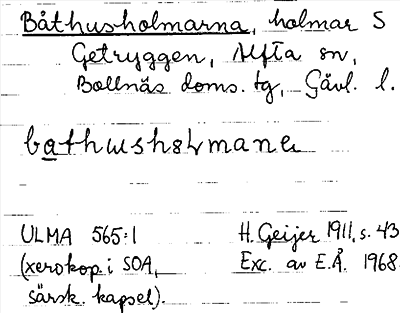 Båthusholmarna, holmar S
Getryggen, Alfta sn,
Bollnäs doms. tg, Gävl. l.
ULMA 565:1
(xerokop. i SOA,
särsk. kapsel).
H. Geijer 1911, s. 43
Exc. av E.Å. 1968